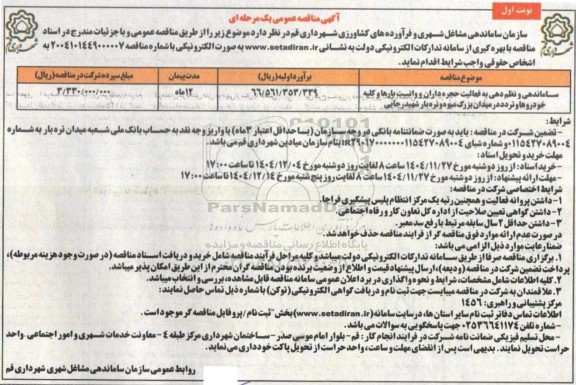 نوبت اول
آگهی مناقصه عمومی یک مرحله ای
سازمان ساماندهی مشاغل شهری و فرآورده های کشاورزی شهرداری قم در نظر دارد موضوع زیر را از طریق مناقصه عمومی و با جزئیات مندرج در اسناد
مناقصه با بهره گیری از سامانه تدارکات الکترونیکی دولت به نشانی www.setadiran.ir به صورت الکترونیکی با شماره مناقصه ۲۰۰۴۱۰۱۴۴۹۰۰۰۰۰۷ به
اشخاص حقوقی واجب شرایط اقدام نماید.
موضوع مناقصه
برآورد اولیه (ریال)
مدت پیمان
مبلغ سپرده شرکت در مناقصه (ریال)
ساماندهی و نظم دهی به فعالیت حجره داران و وانیت بارها و کلیه
خودروهای تردد در میدان بزرگ میوه و تره بار شهید رجایی
۶۶/۵۶۱/۳۵۳/۳۳۹
۱۲ماه
۳/۳۳۰/۰۰۰/۰۰۰
شرایط:
- تضمین شرکت در مناقصه : باید به صورت ضمانتنامه بانکی در وجه سازمان (با حداقل اعتبار ۳ماه) یا واریز وجه نقد به حساب بانک ملی شعبه میدان تره بار به شماره
۰۱۱۵۴۲۷۰۸۹۰۰۴ و شماره شبای IR۲۹۰۱۷۰۰۰۰۰۰۰۱۱۵۴۲۷۰۸۹۰۰۴ بنام سازمان میادین شهرداری قم می باشد.
مهلت خرید و تحویل اسناد:
- خرید اسناد: از روز دوشنبه مورخ ۱۴۰۴/۱۱/۲۷ ساعت ۸ لغایت روز دوشنبه مورخ ۱۴۰۴/۱۲/۰۴ تا ساعت ۱۷:۰۰
- مهلت ارائه پیشنهاد: از روز دوشنبه مورخ ۱۴۰۴/۱۱/۲۷ ساعت ۸ لغایت روز پنج شنبه مورخ ۱۴۰۴/۱۲/۱۴ تا ساعت ۱۷:۰۰
شرایط اختصاصی شرکت در مناقصه:
۱- داشتن پروانه فعالیت و همچنین رتبه یک مرکز انتظام پلیس پیشگیری فراجا.
۲- داشتن گواهی تعیین صلاحیت از اداره کل تعاون کار و رفاه اجتماعی.
۳- داشتن حداقل ۲سال سابقه مرتبط با رفع سد معبر.
در صورت عدم ارائه موارد فوق مناقصه گر از فرایند مناقصه حذف خواهد شد.
ضمنا رعایت موارد ذیل الزامی می باشد:
۱. برگزاری مناقصه صرفا از طریق سامانه تدارکات الکترونیکی دولت میباشد و کلیه مراحل فرآیند مناقصه شامل خرید و دریافت اسناد مناقصه (در صورت وجود هزینه مربوطه)،
پرداخت تضمین شرکت در مناقصه (ودیعه)، ارسال پیشنهاد قیمت و اطلاع از وضعیت برنده بودن مناقصه گران محترم از این طریق امکان پذیر میباشد.
۲.کلیه اطلاعات شامل مشخصات، شرایط و نحوه واگذاری در برد اعلان عمومی سامانه مناقصه قابل مشاهده، بررسی و انتخاب میباشد.
۳. علاقمندان به شرکت در مناقصه میبایست جهت ثبت نام و دریافت گواهی الکترونیکی (توکن) با شماره ذیل تماس حاصل نمایند:
مرکز پشتیبانی و راهبری: ۱۴۵۶
اطلاعات تماس دفاتر ثبت نام سایر استان ها، در سایت سامانه (www.setadiran.ir) بخش "ثبت نام / پروفایل مناقصه گر موجود است.
- شماره تلفن ۰۲۵۳۶۶۴۱۱۷۴ جهت پاسخگویی به سوالات می باشد.
- محل تسلیم فیزیکی ضمانت نامه شرکت در فرآیند انجام کار : قم - بلوار امام موسی صدر - ساختمان شهرداری مرکز طبقه ۴ - معاونت خدمات شهری و امور اجتماعی، واحد
حراست تحویل نمایند. بدیهی است پس از انقضای مهلت و ساعت، واحد حراست از تحویل پاکت خودداری می نماید.
روابط عمومی سازمان ساماندهی مشاغل شهری شهرداری قم